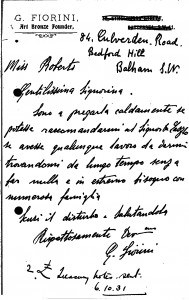 G. FIORINI,
Art Bronze Founder.
84. Culverden. Road.
Bedford Hill
Balham S.W.
Miss Roberts
Gentilissima Signorina.
Sono a pregarla caldamente se
potesse raccomandarmi al Signor
se avesse qualunque lavoro da darmi
trovandomi da lungo tempo senza
far nulla e in estremo bisogno con
numerosa famiglia
Scusi il disturbo e salutandola
Rispettosamente
G. Fiorini
2. £ Treasury note sent.
6.10.31